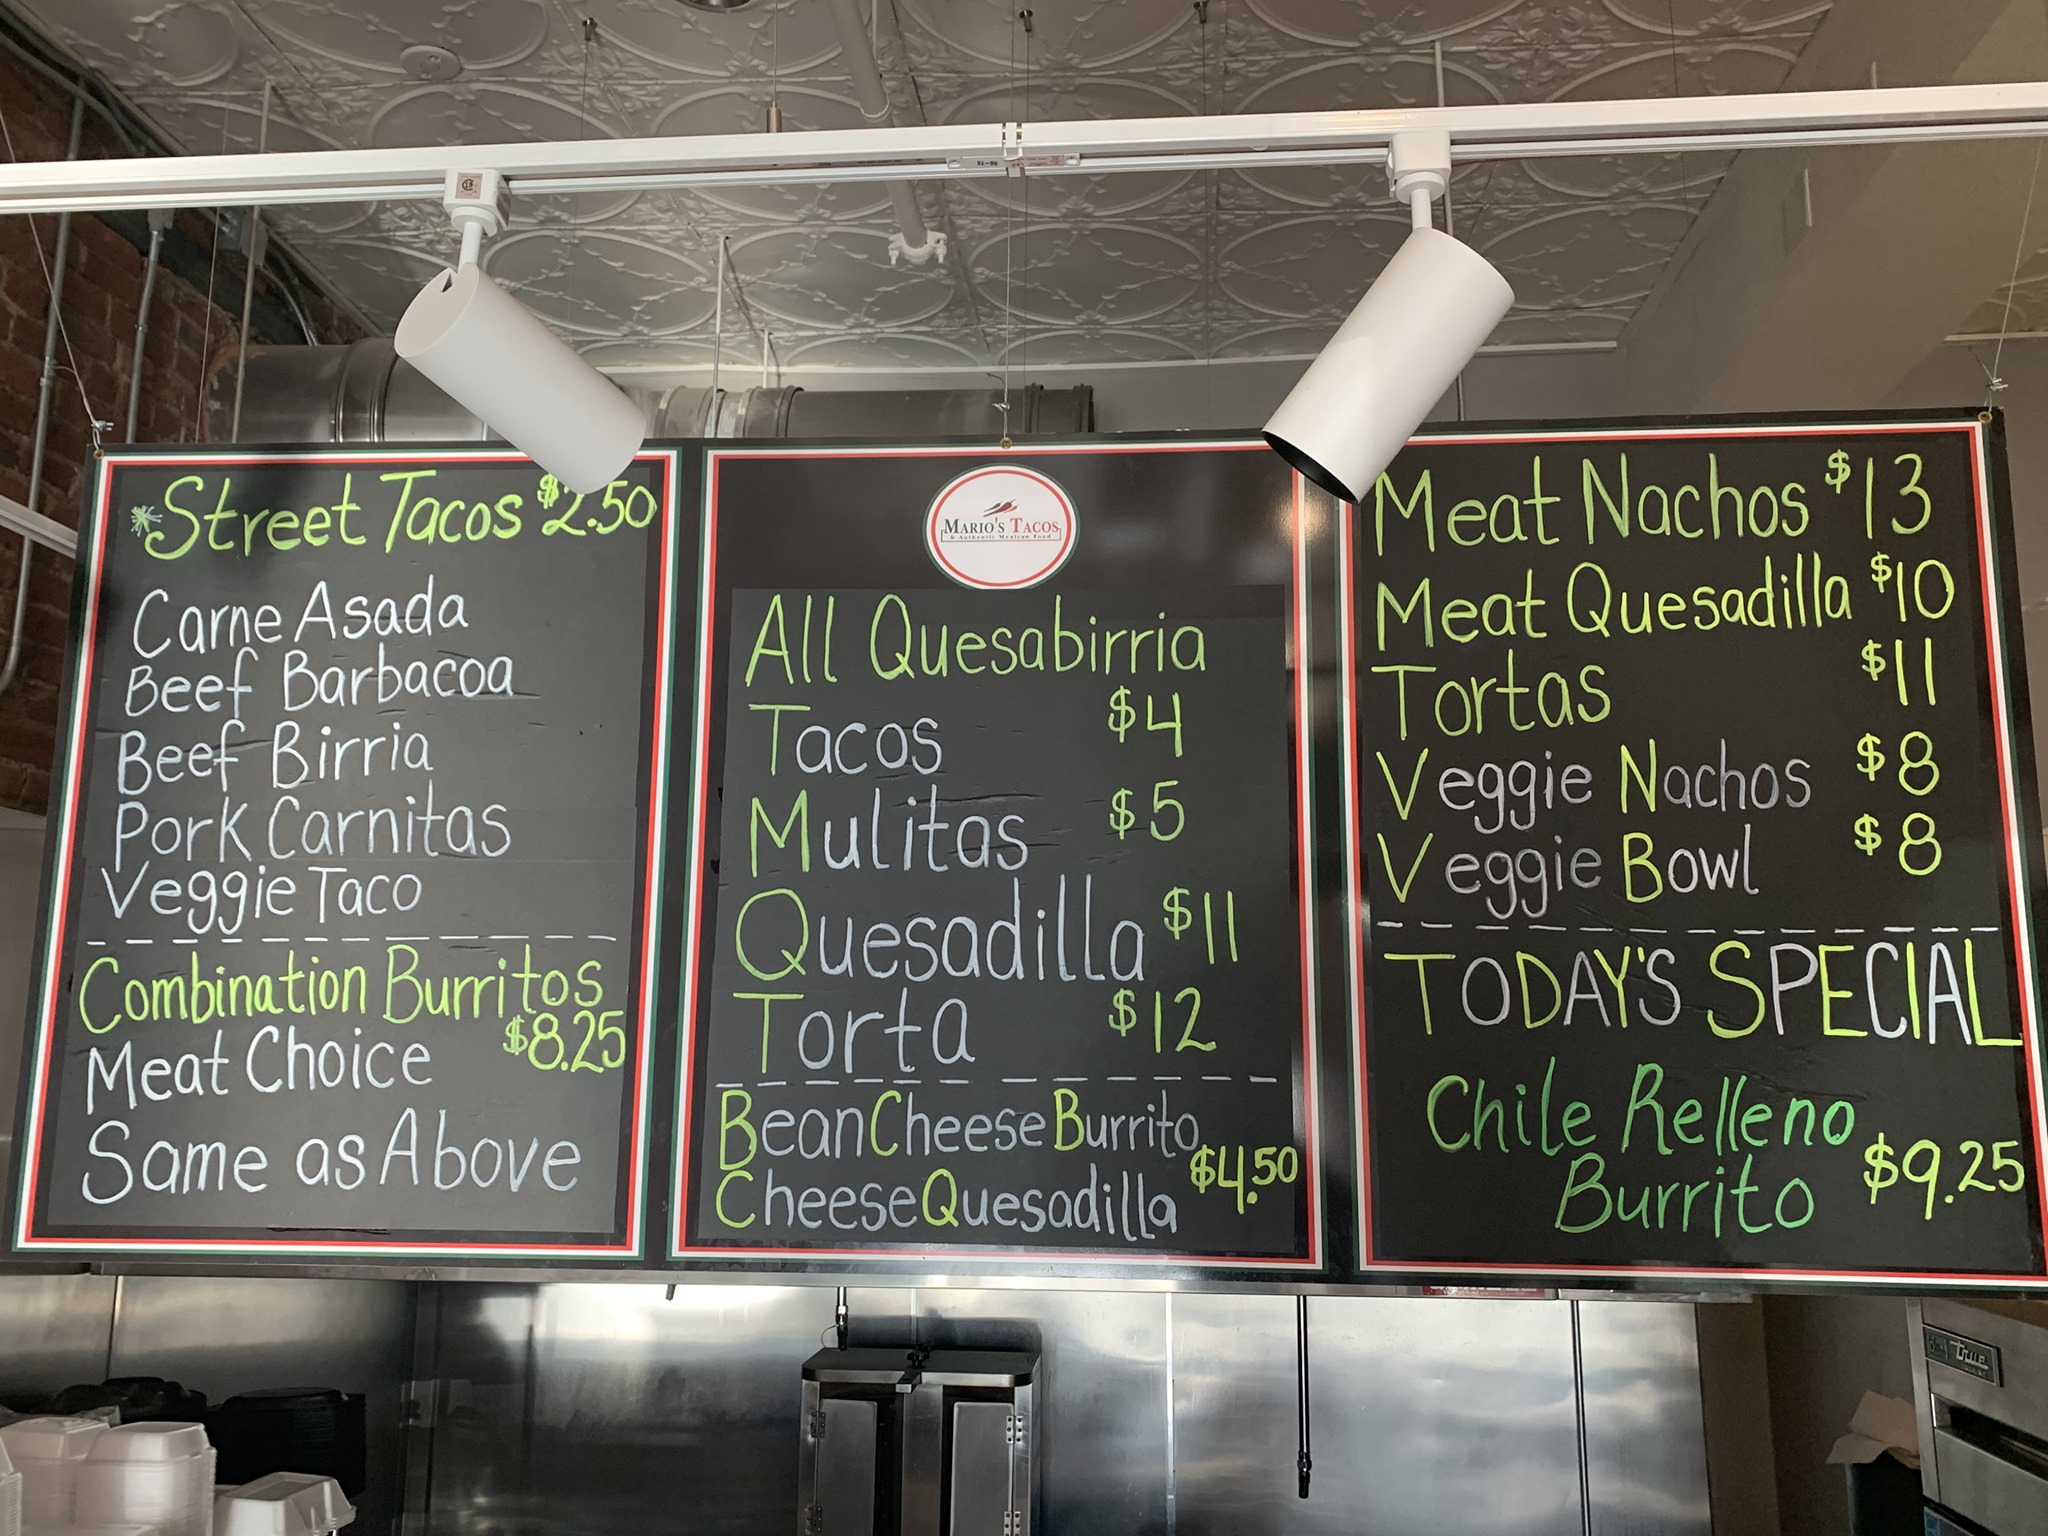 *Street Tacos $2.50
Carne Asada
Beef Barbacoa
Beef Birria
Pork Carnitas
Veggie Taco
Combination Burritos
$8.25
Meat Choice
Same as Above
MARIO'S TACOS
& Authentic Mexican Food
All Quesabirria
Tacos $4
Mulitas $5
Quesadilla $11
Torta $12
Bean Cheese Burrito
$4.50
Cheese Quesadilla
Meat Nachos $13
Meat Quesadilla $10
Tortas $11
Veggie Nachos $8
Veggie Bowl $8
TODAY'S SPECIAL
Chile Relleno
Burrito $9.25
True